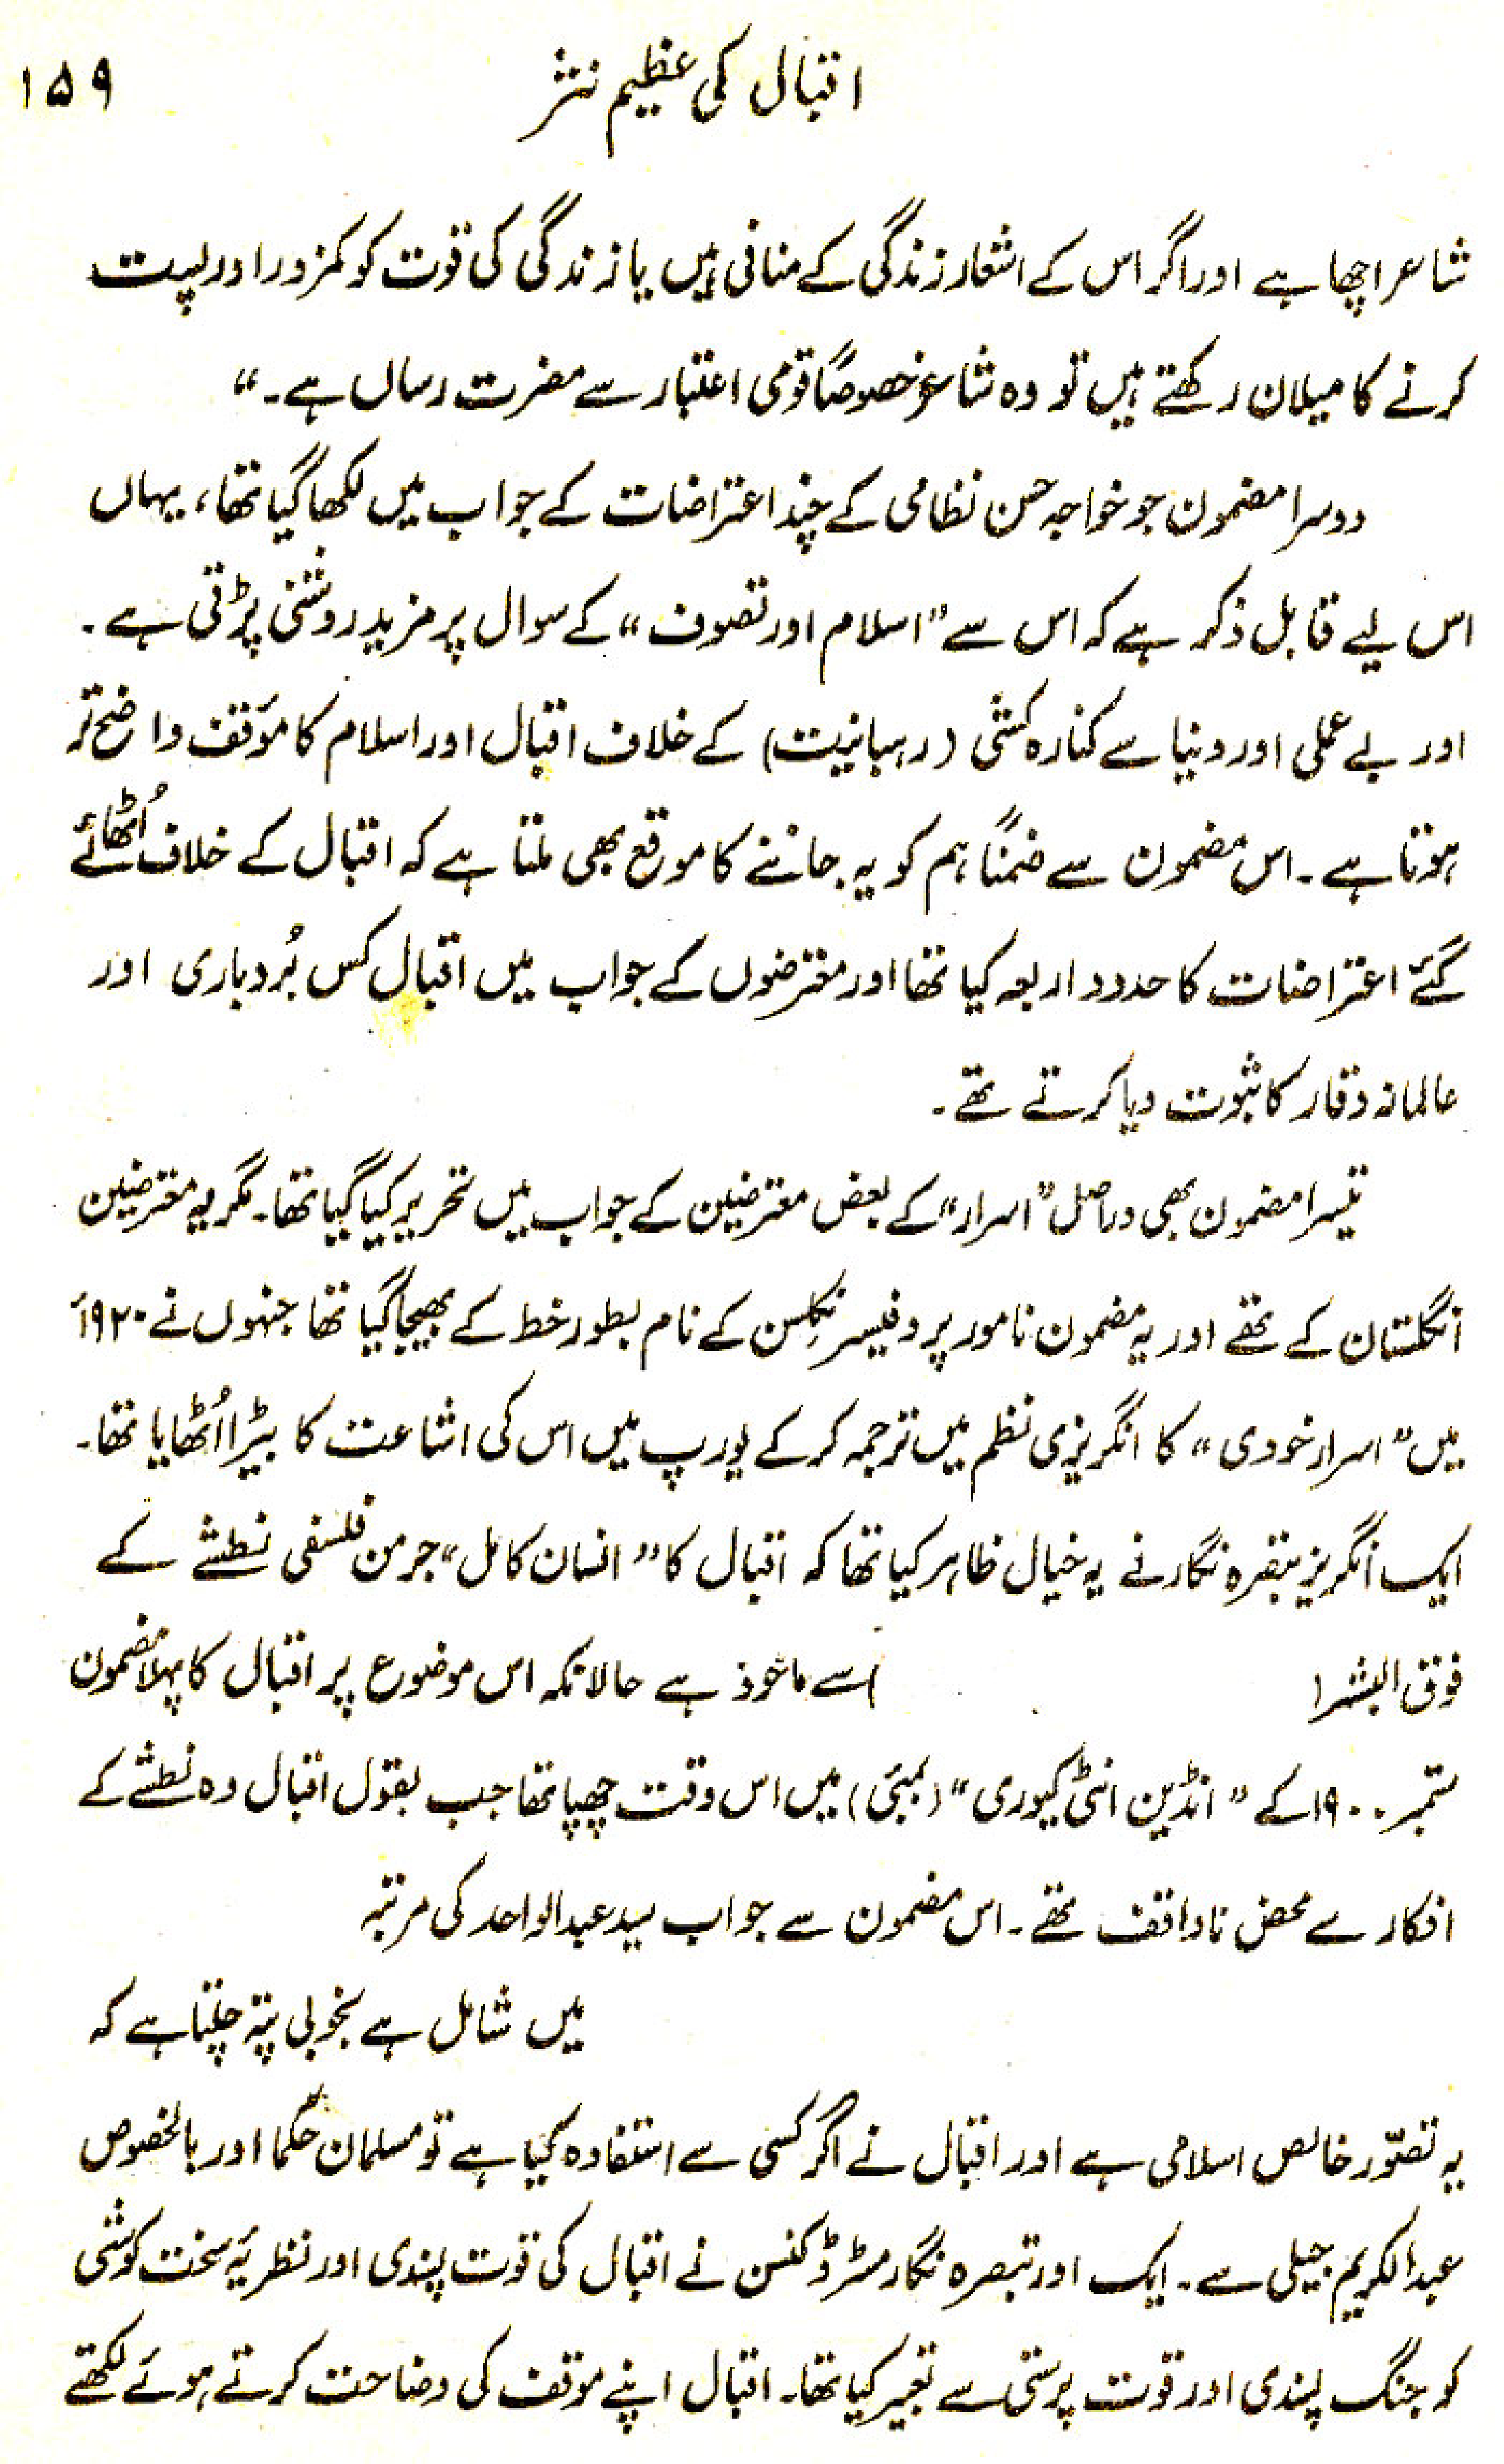 اقبال کی عظیم نثر
۱۵۹
شاعر اچھا ہے اور اگر اس کے اشعار زندگی کے منافی ہیں یا زندگی کی قوت کو کمزور اور پست
کرنے کا میلان رکھتے ہیں تو وہ شاعر خصوصاً قومی اعتبار سے مضرت رساں ہے۔“
دوسرا مضمون جو خواجہ حسن نظامی کے چند اعتراضات کے جواب میں لکھا گیا تھا، یہاں
اس لیے قابل ذکر ہے کہ اس سے ”اسلام اور تصوف“ کے سوال پر مزید روشنی پڑتی ہے۔
اور بے عملی اور دنیا سے کنارہ کشی (رہبانیت) کے خلاف اقبال اور اسلام کا مؤقف واضح تر
ہوتا ہے۔ اس مضمون سے ضمناً ہم کو یہ جاننے کا موقع بھی ملتا ہے کہ اقبال کے خلاف اُٹھائے
گئے اعتراضات کا حدود اربعہ کیا تھا اور معترضوں کے جواب میں اقبال کس بُردباری اور
عالمانہ وقار کا ثبوت دیا کرتے تھے۔
تیسرا مضمون بھی دراصل ”اسرار“ کے بعض معترضین کے جواب میں تحریر کیا گیا تھا۔ مگر یہ معترضین
انگلستان کے تھے اور یہ مضمون نامور پروفیسر نکلسن کے نام بطور خط کے بھیجا گیا تھا جنہوں نے ۱۹۲۰ء
میں ”اسرار خودی“ کا انگریزی نظم میں ترجمہ کر کے یورپ میں اس کی اشاعت کا بیڑا اُٹھایا تھا۔
ایک انگریز تبصرہ نگار نے یہ خیال ظاہر کیا تھا کہ اقبال کا ”انسان کامل“ جرمن فلسفی نطشے کے
فوق البشر ( ) سے ماخوذ ہے حالانکہ اس موضوع پر اقبال کا پہلا مضمون
ستمبر ۱۹۰۰ کے ”انڈین انٹی کیوری“ (بمبئی) میں اس وقت چھپا تھا جب بقول اقبال وہ نطشے کے
افکار سے محض ناواقف تھے۔ اس مضمون سے جو اب سید عبدالواحد کی مرتبہ
میں شامل ہے بخوبی پتہ چلتا ہے کہ
یہ تصوّر خالص اسلامی ہے اور اقبال نے اگر کسی سے استفادہ کیا ہے تو مسلمان حُکما اور بالخصوص
عبدالکریم جیلی سے۔ ایک اور تبصرہ نگار مسٹر ڈکنسن نے اقبال کی قوت پسندی اور نظریۂ سخت کوشی
کو جنگ پسندی اور قوت پرستی سے تعبیر کیا تھا۔ اقبال اپنے موقف کی وضاحت کرتے ہوئے لکھتے